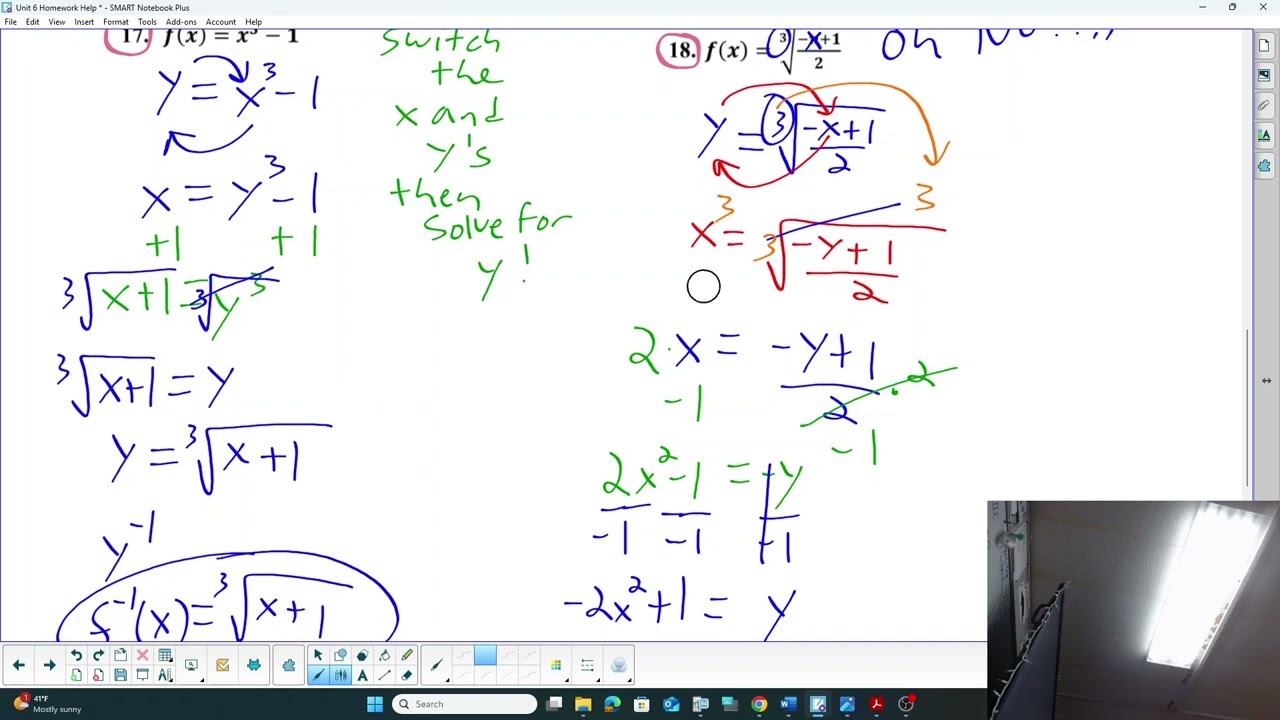 Unit 6 Homework Help * - SMART Notebook Plus
File Edit View Insert Format Tools Add-ons Account Help
17. f(x) = x³ − 1
y = x³ − 1
x = y³ − 1
+1 +1
³√x+1 = ³√y³
³√x+1 = y
y = ³√x+1
y⁻¹
f⁻¹(x) = ³√x+1
switch
the
x and
y's
then
solve for
y!
18. f(x) = ³√(-x+1)/2
y = ³√(-x+1)/2
x³ = ³√(-y+1)/2 ³
2·x = (-y+1)/2 ·2
-1 -1
2x²-1 = -y
-1 -1 -1
-2x²+1 = y
41°F
Mostly sunny
Search